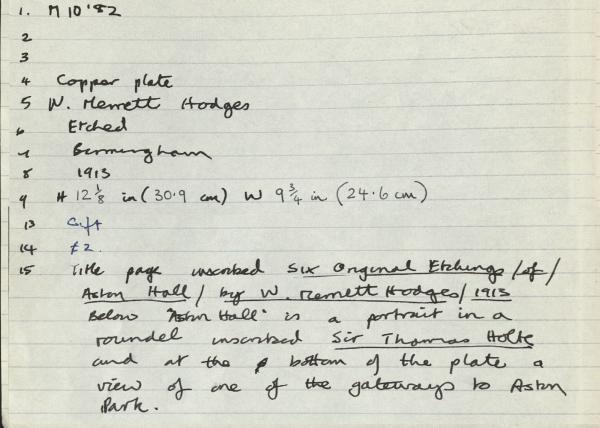 1. M 10'82
2
3
4 Copper plate
5 W. Merrett Hodges
6 Etched
7 Birmingham
8 1913
9 H 12 1/8 in (30.9 cm) W 9 3/4 in (24.6 cm)
13 Gift
14 £2.
15 Title page inscribed Six Original Etchings /of/
Aston Hall / by W. Merrett Hodges / 1913
Below "Aston Hall" is a portrait in a
roundel inscribed Sir Thomas Holte
and at the bottom of the plate a
view of one of the gateways to Aston
Park.